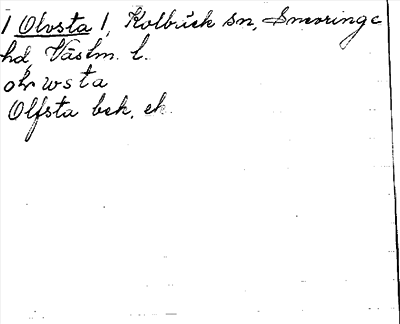 1 Olvsta 1, Kolbäck sn, Snevringe
hd, Västm. l.
olvsta
Olfsta bek. ek.